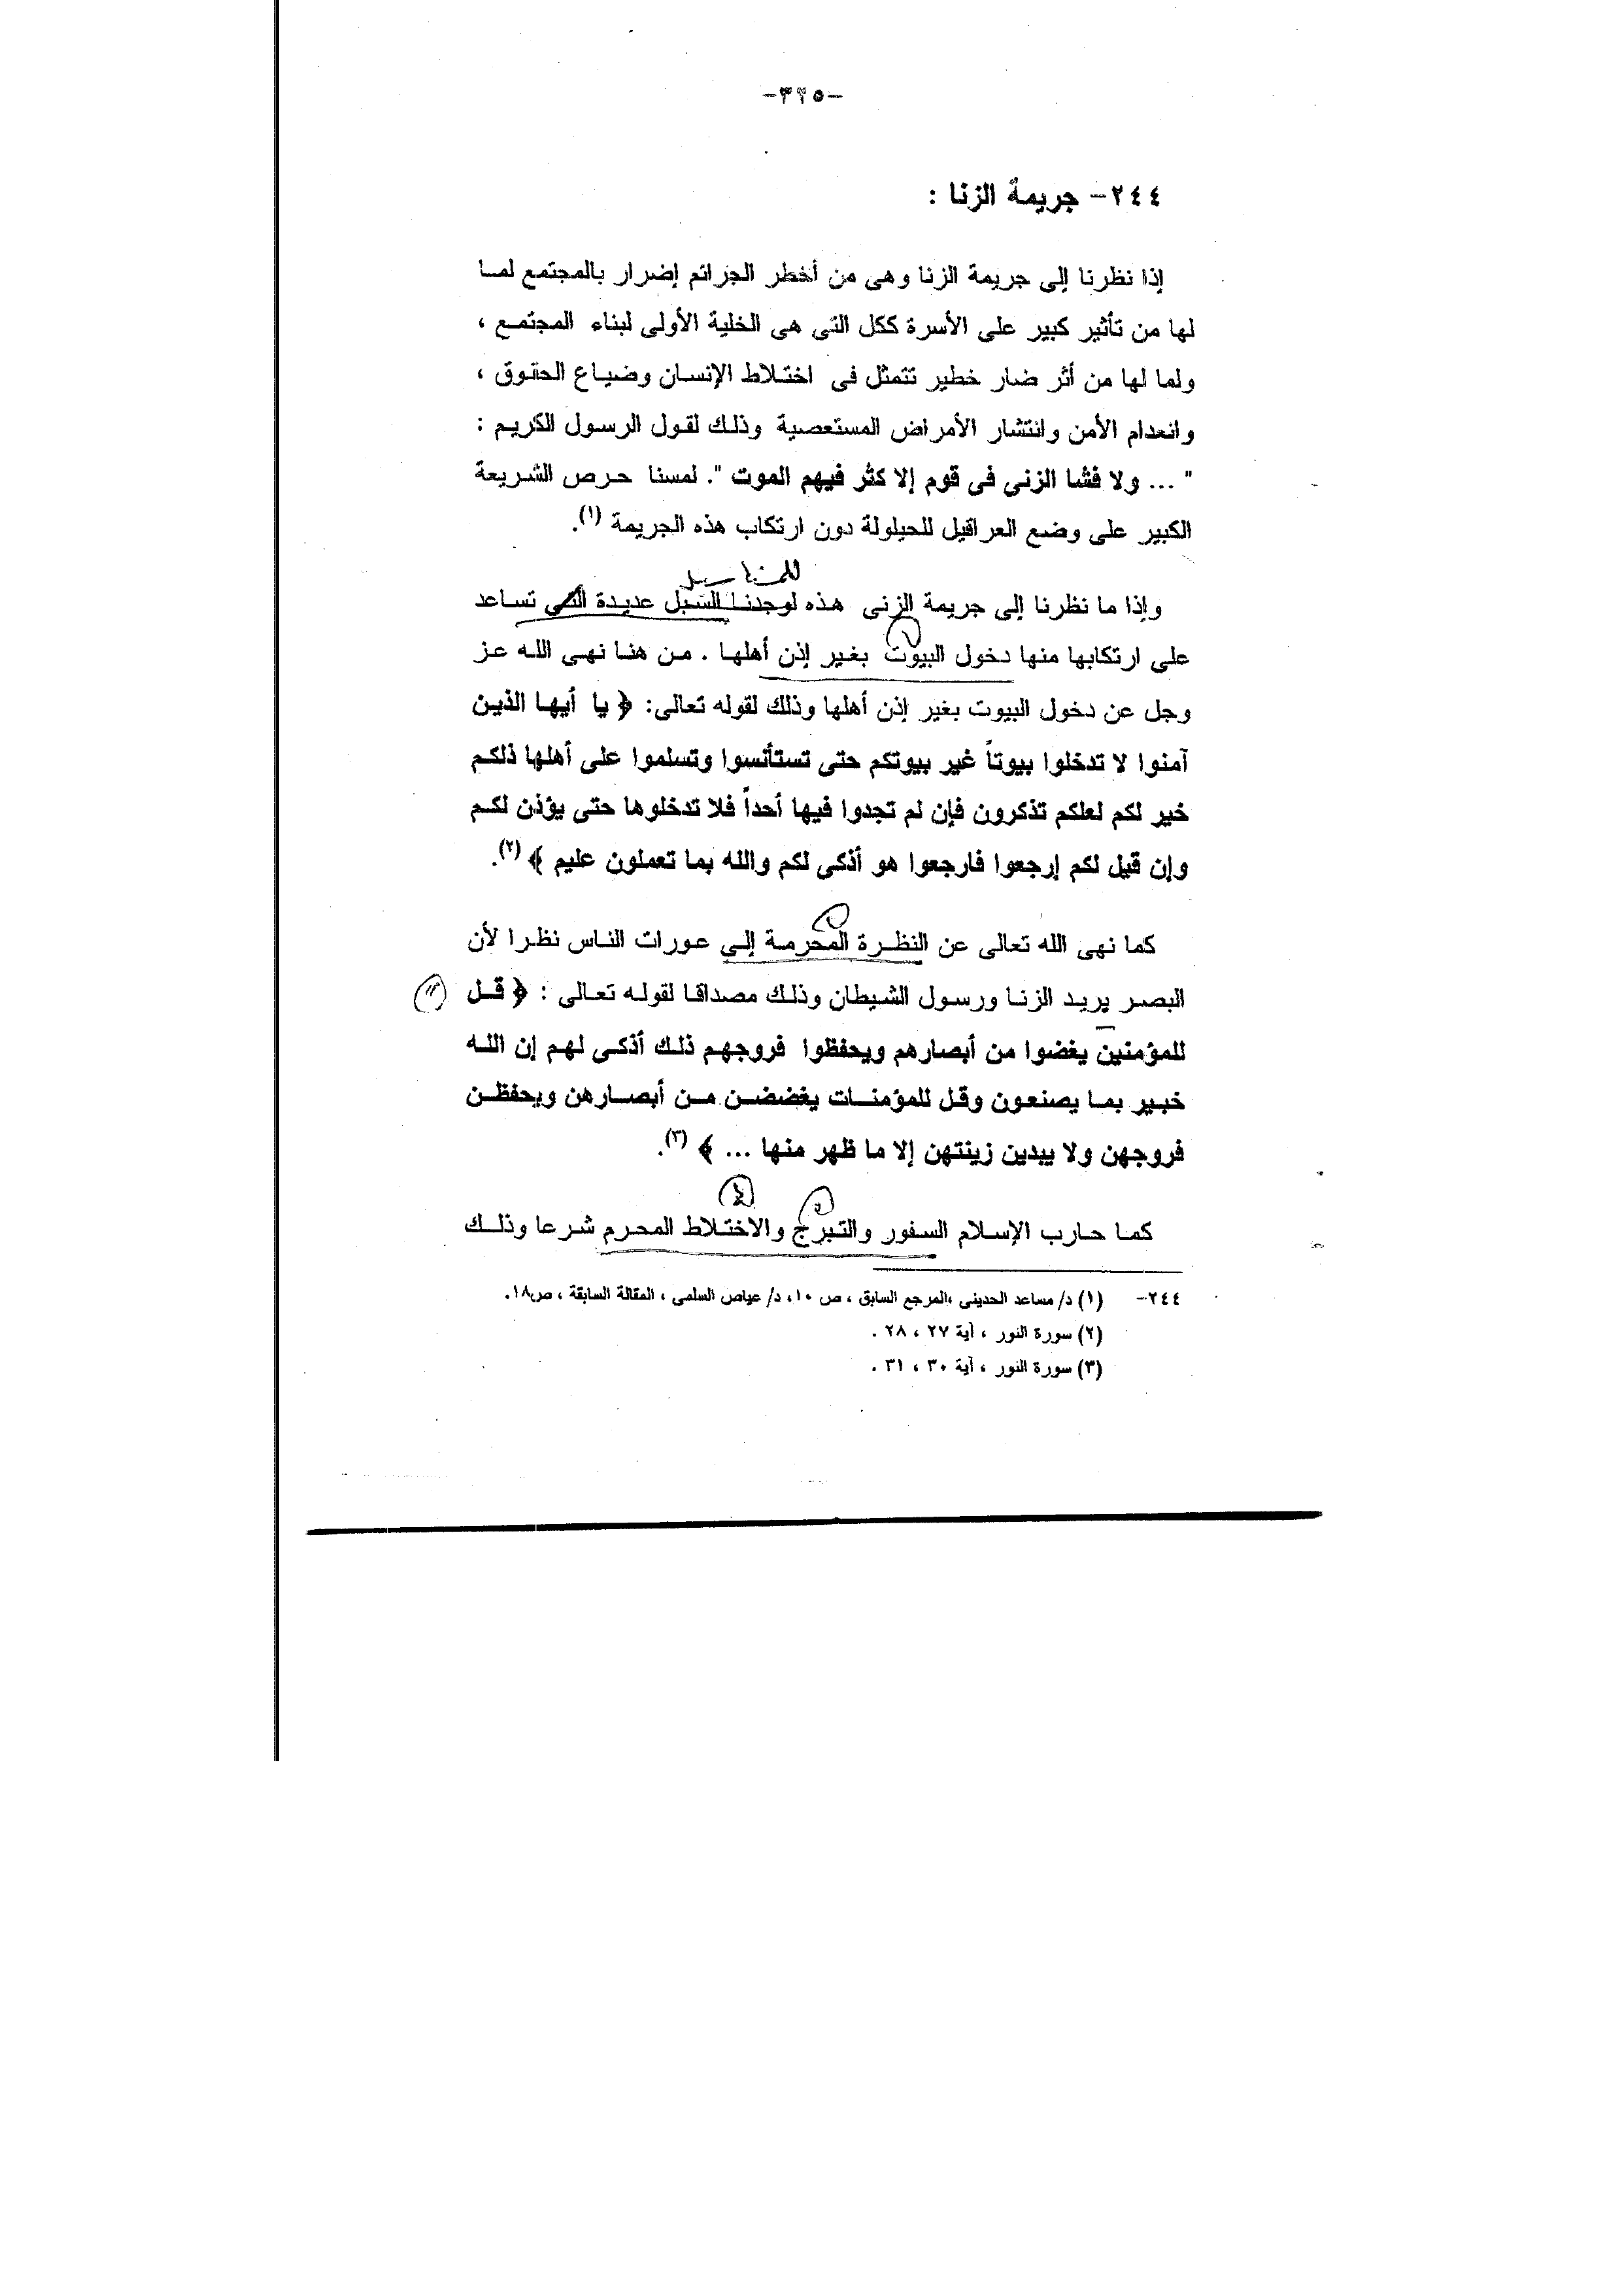 -٣٢٥-
٢٤٤- جريمة الزنا :
إذا نظرنا إلى جريمة الزنا وهى من أخطر الجرائم إضرار بالمجتمع لما
لها من تأثير كبير على الأسرة ككل التى هى الخلية الأولى لبناء المجتمع ،
ولما لها من أثر ضار خطير تتمثل فى اختلاط الإنسان وضياع الحقوق ،
وانعدام الأمن وانتشار الأمراض المستعصية وذلك لقول الرسول الكريم :
" ... ولا فشا الزنى فى قوم إلا كثر فيهم الموت ". لمسنا حرص الشريعة
الكبير على وضع العراقيل للحيلولة دون ارتكاب هذه الجريمة (١).
وإذا ما نظرنا إلى جريمة الزنى هذه لوجدنا السبل عديدة التى تساعد
على ارتكابها منها دخول البيوت بغير إذن أهلها . من هنا نهى الله عز
وجل عن دخول البيوت بغير إذن أهلها وذلك لقوله تعالى: ﴿ يا أيها الذين
آمنوا لا تدخلوا بيوتاً غير بيوتكم حتى تستأنسوا وتسلموا على أهلها ذلكم
خير لكم لعلكم تذكرون فإن لم تجدوا فيها أحداً فلا تدخلوها حتى يؤذن لكم
وإن قيل لكم إرجعوا فارجعوا هو أذكى لكم والله بما تعملون عليم ﴾ (٢).
كما نهى الله تعالى عن النظرة المحرمة إلى عورات الناس نظرا لأن
البصر يريد الزنا ورسول الشيطان وذلك مصداقا لقوله تعالى : ﴿ قل
للمؤمنين يغضوا من أبصارهم ويحفظوا فروجهم ذلك أذكى لهم إن الله
خبير بما يصنعون وقل للمؤمنات يغضضن من أبصارهن ويحفظن
فروجهن ولا يبدين زينتهن إلا ما ظهر منها ... ﴾ (٣).
كما حارب الإسلام السفور والتبرج والاختلاط المحرم شرعا وذلك
٢٤٤- (١) د/ مساعد الحديثى ،المرجع السابق ، ص ١٠، د/ عياض السلمى ، المقالة السابقة ، ص١٨.
(٢) سورة النور ، آية ٢٧ ، ٢٨ .
(٣) سورة النور ، آية ٣٠ ، ٣١ .